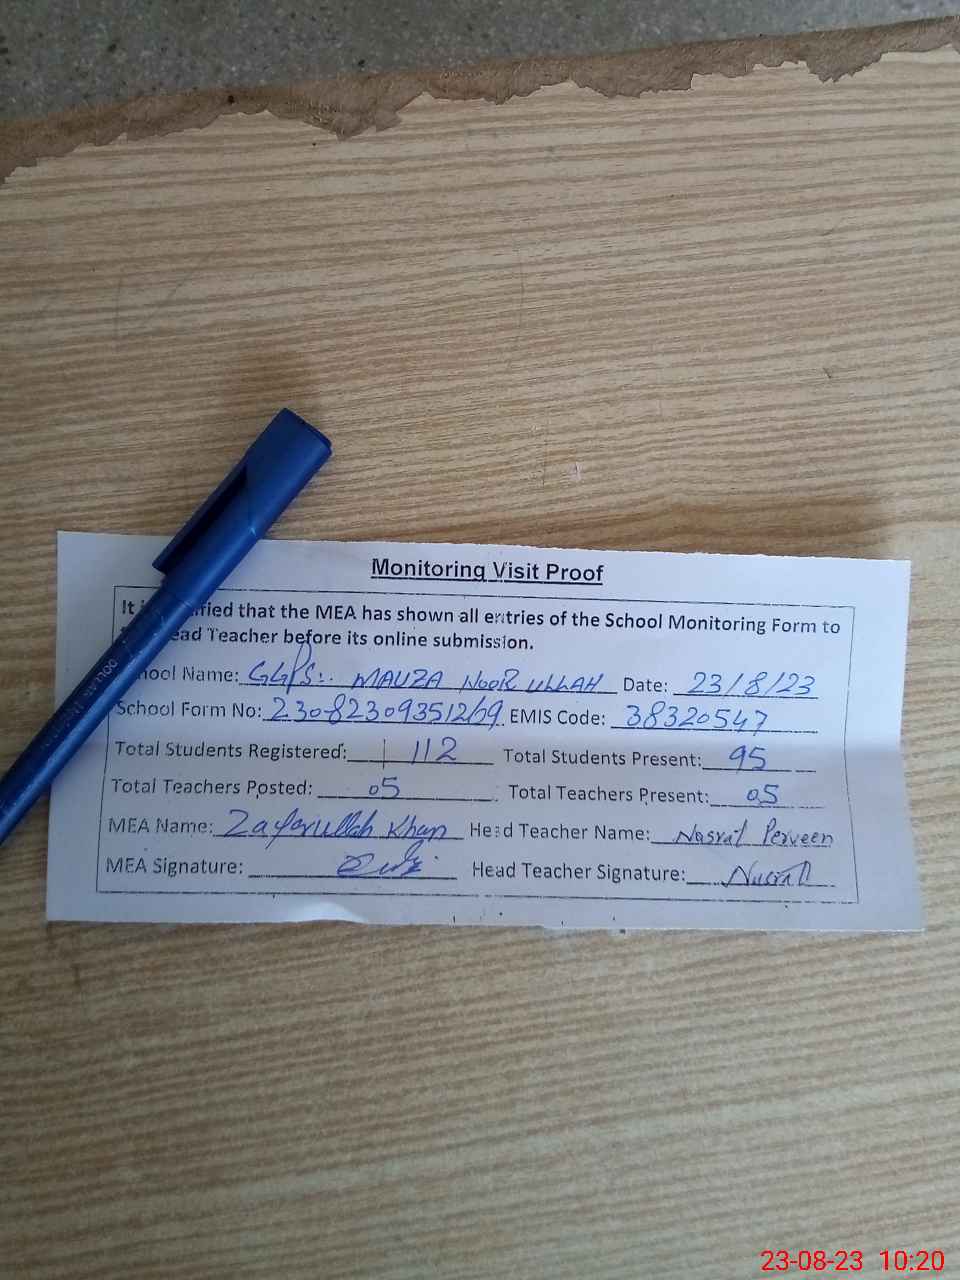 Monitoring Visit Proof
It is certified that the MEA has shown all entries of the School Monitoring Form to
Head Teacher before its online submission.
School Name: GGPS: MAUZA NOOR ULLAH Date: 23/8/23
School Form No: EMIS Code: 38320547
Total Students Registered: 112 Total Students Present: 95
Total Teachers Posted: 05 Total Teachers Present: 05
MEA Name: Zafarullah Khan Head Teacher Name: Nasrat Perveen
MEA Signature: Head Teacher Signature: Nusrat
DOLLAR
23-08-23 10:20